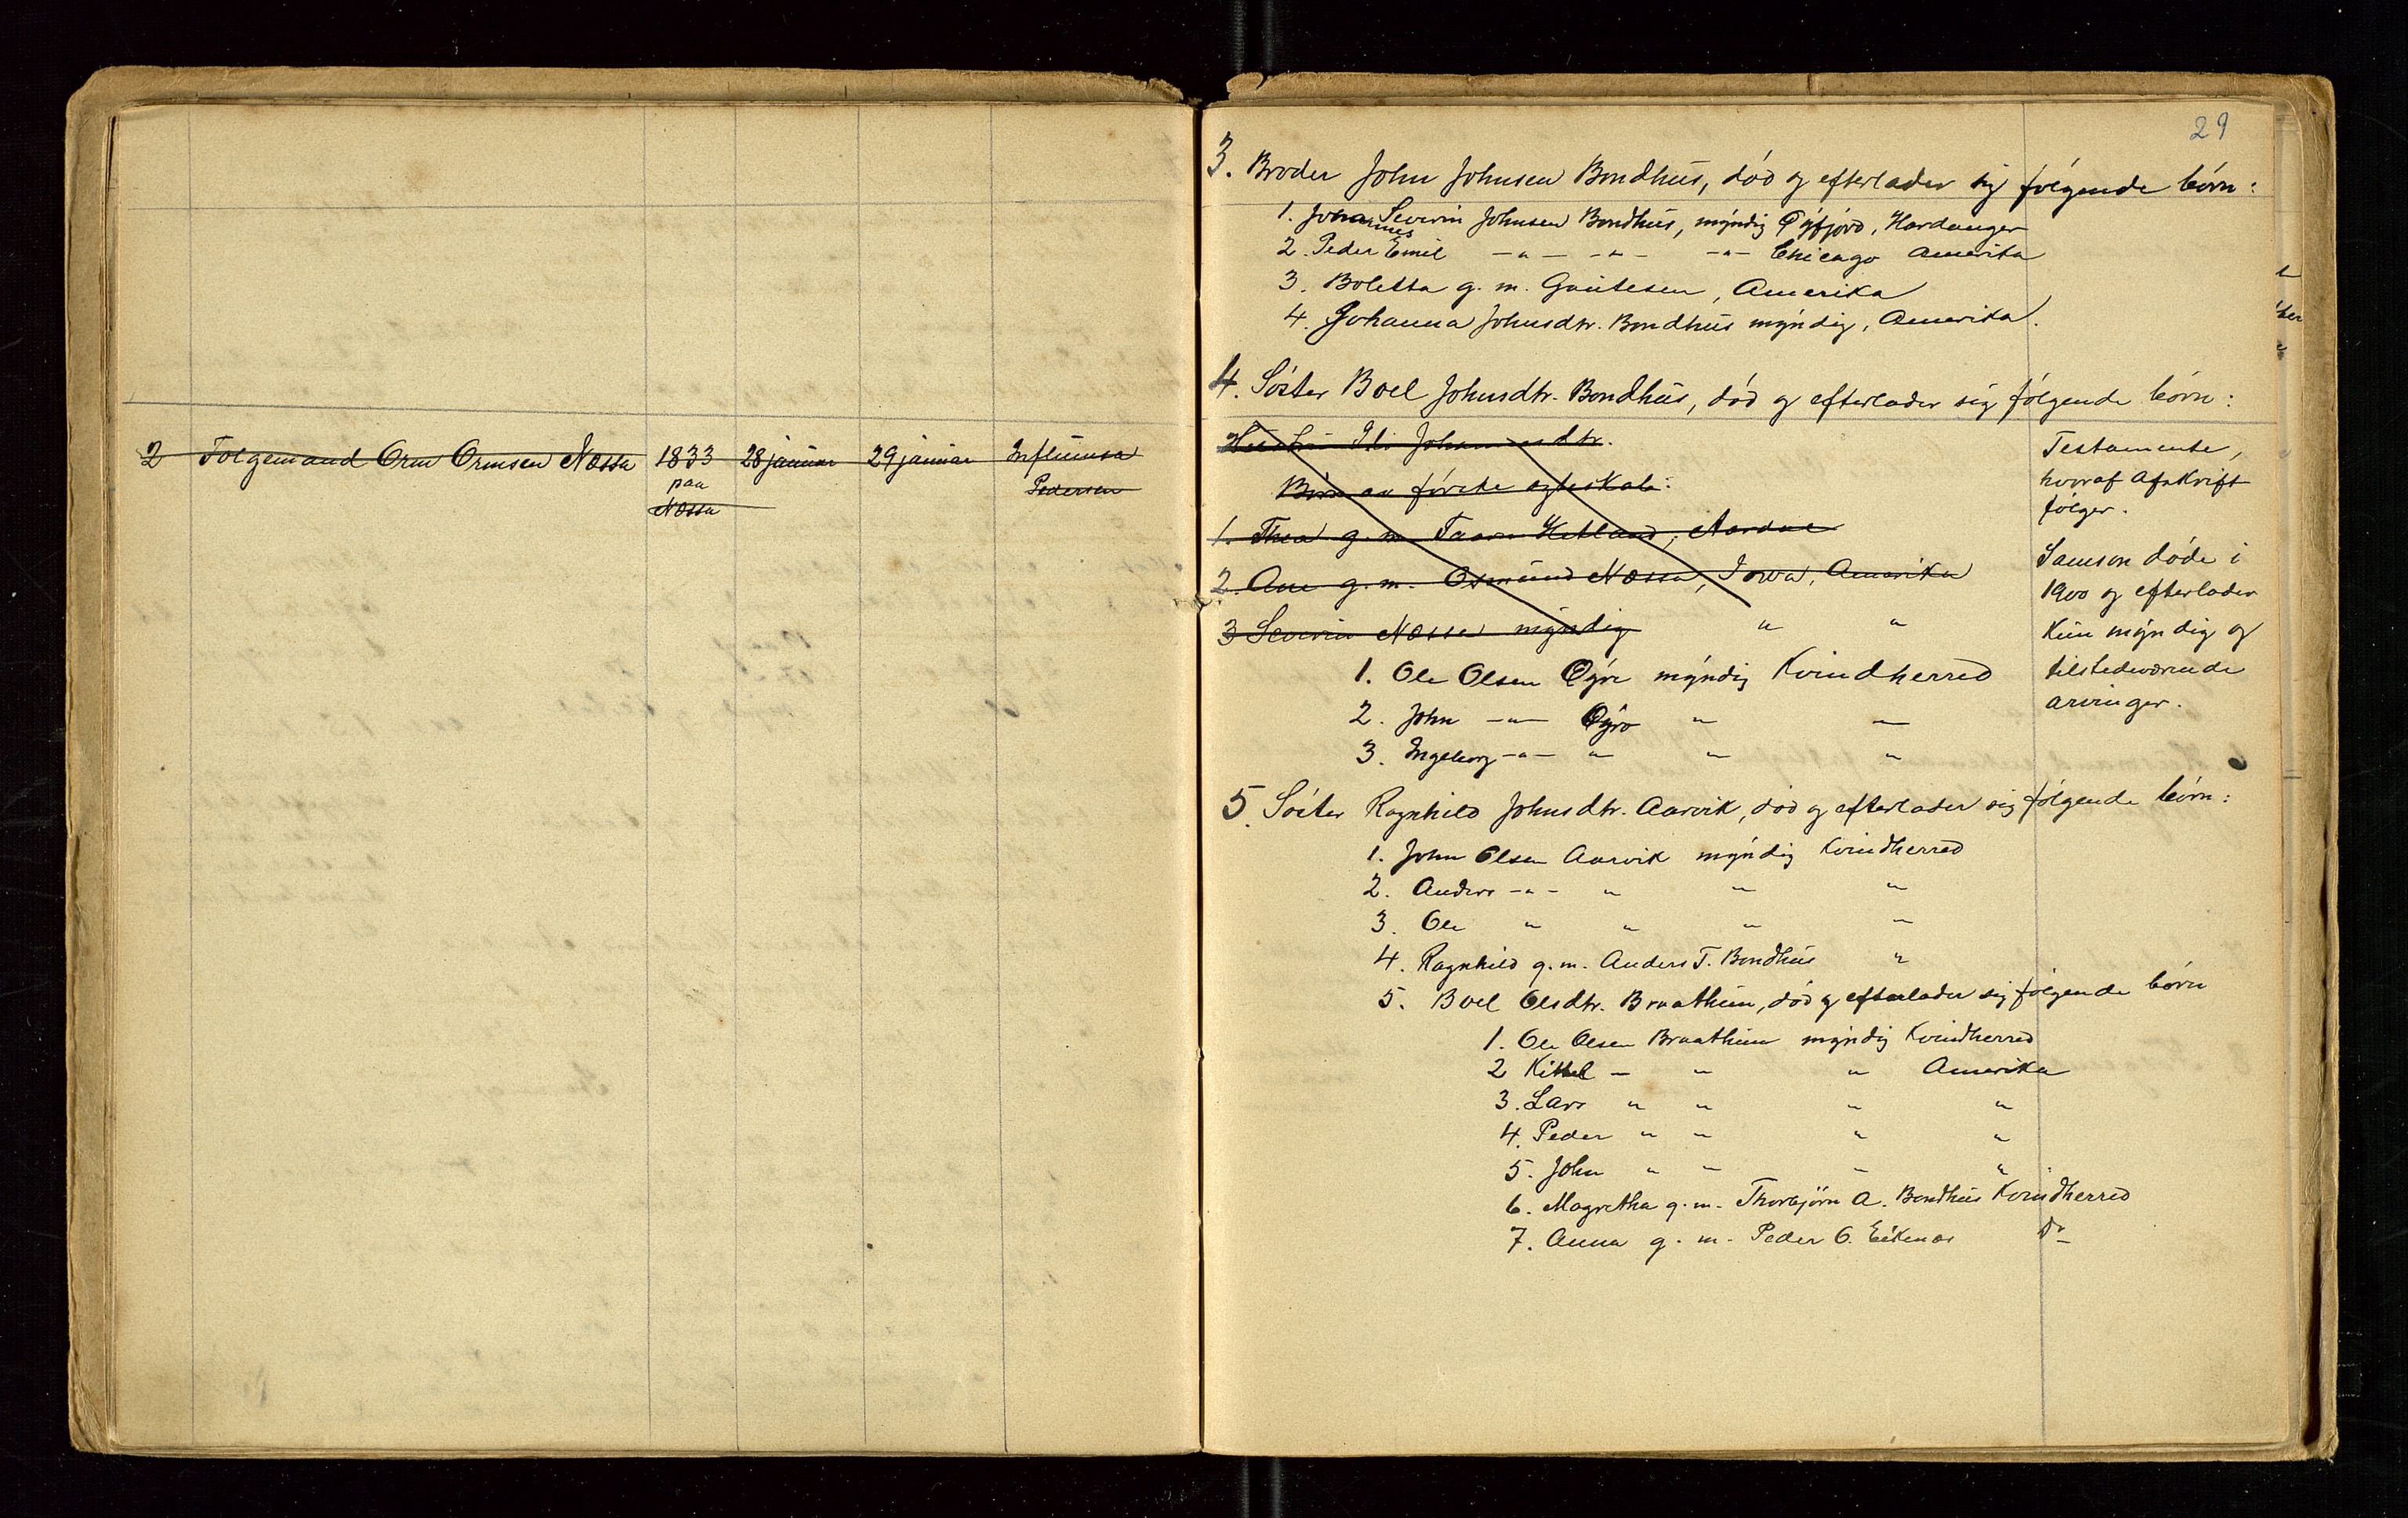 2 Folgemand Orm Ormsen Næssa 1833 28 januar 29 januar Influensa
paa Pedersen
Næssa
29
3. Broder John Johnsen Bondhus, död og efterlader sig fölgende börn:
1. Johannes Severin Johnsen Bondhus, myndig Øyfjord, Hardanger
2. Peder Emil -"- -"- -"- Chicago Amerika
3. Boletta g. m. Gautesen, Amerika
4. Johanna Johnsdtr. Bondhus myndig, Amerika.
4. Söster Boel Johnsdtr. Bondhus, död og efterlader sig fölgende börn:
Hustru Johannesdtr.
Börn av förste egteskab:
1. Thea g. m. Hetland, Aardal
2. Ane g. m. Osmund Næssa, Iowa, Amerika
3 Severin Næssa myndig " "
1. Ole Olsen Øyre myndig Kvindherred
2. John -"- Øyro " "
3. Ingeborg -"- " " "
Testamente,
hvoraf Afskrift
fölger.
Samson döde i
1900 og efterlader
Kun myndig og
tilstedeværende
arvinger.
5. Söster Ragnhild Johnsdtr. Aarvik, död og efterlader sig fölgende börn:
1. John Olsen Aarvik myndig Kvindherred
2. Anders -"- " " "
3. Ole " " " "
4. Ragnhild g. m. Anders T. Bondhus "
5. Boel Olsdtr. Braathun, död og efterlader sig fölgende börn
1. Ole Olsen Braathun myndig Kvindherred
2 Kittel - " " Amerika
3. Lars " " " "
4. Peder " " " "
5. John " " " "
6. Magretha g. m. Thorbjörn A. Bondhus Kvindherred
7. Anna g. m. Peder O. Eikenæs do